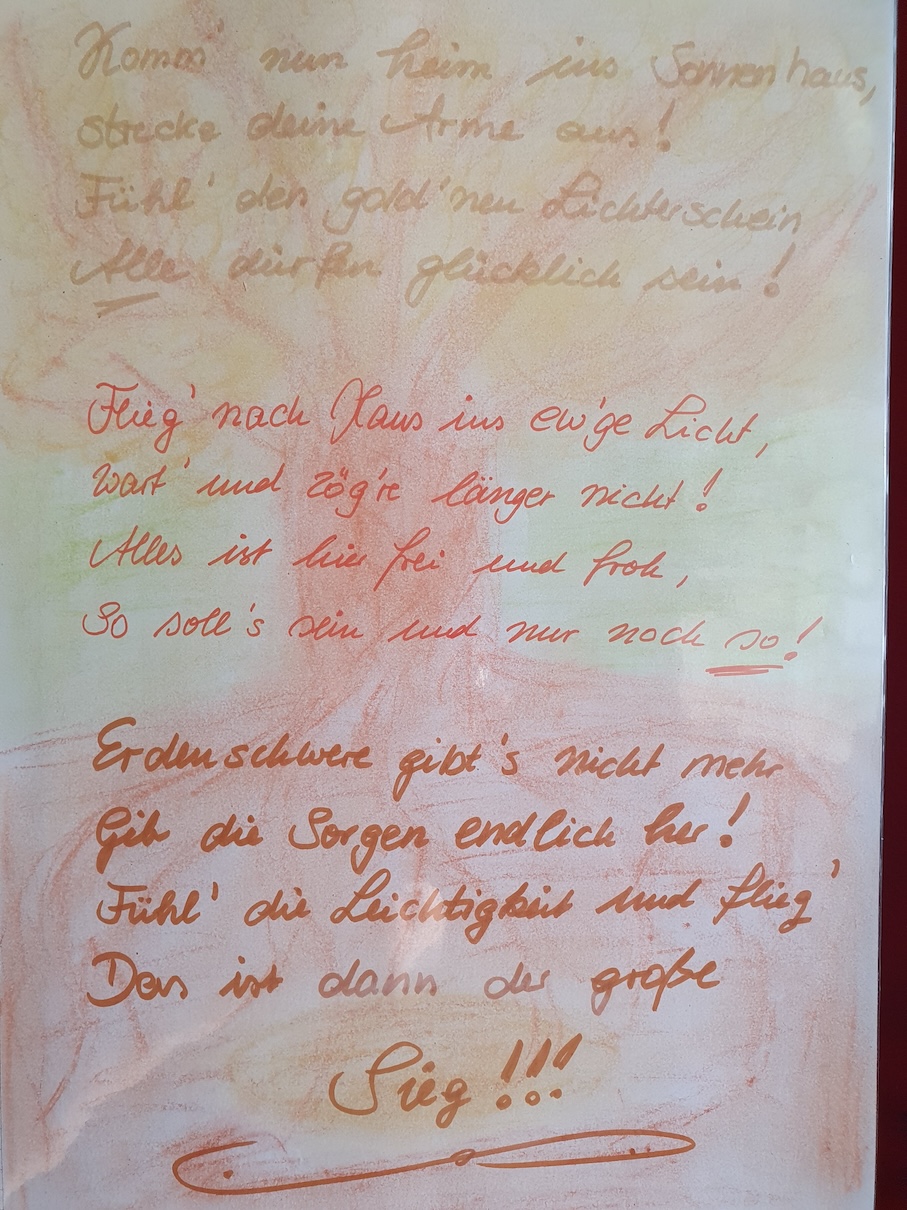 Komm' nun heim ins Sonnenhaus,
strecke deine Arme aus!
Fühl' den gold'nen Lichterschein
Alle dürfen glücklich sein!
Flieg' nach Haus ins ew'ge Licht,
wart' und zög're länger nicht!
Alles ist hier frei und froh,
So soll's sein und nur noch so!
Erdenschwere gibt's nicht mehr
Gib die Sorgen endlich her!
Fühl' die Leichtigkeit und flieg'
Das ist dann der große
Sieg!!!